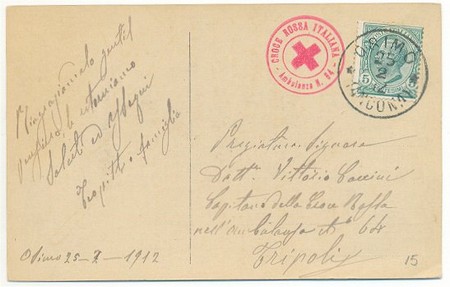 CROCE ROSSA ITALIANA
Ambulanza N. 64
OSIMO
25
2
12
(ANCONA)
5
Ringraziando
gentil
pensiero, le ritorniamo
Saluti ed ossequi
famiglia
Osimo 25-2-1912
Pregiatmo Signore
Dott. Vittorio
Capitano della Croce Rossa
nell'ambulanza No 64
Tripoli
15